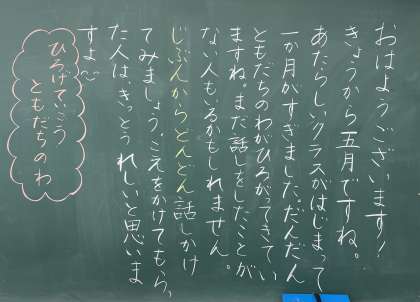 おはようございます!
きょうから五月ですね。
あたらしいクラスがはじまって、
一か月がすぎました。だんだん
ともだちのわがひろがってきてい
ますね。まだ話しをしたことが
ない人もいるかもしれません。
じぶんからどんどん話しかけ
てみましょう。こえをかけてもらっ
た人は、きっとうれしいと思いま
すよ〜
ひろげていこう
ともだちのわ